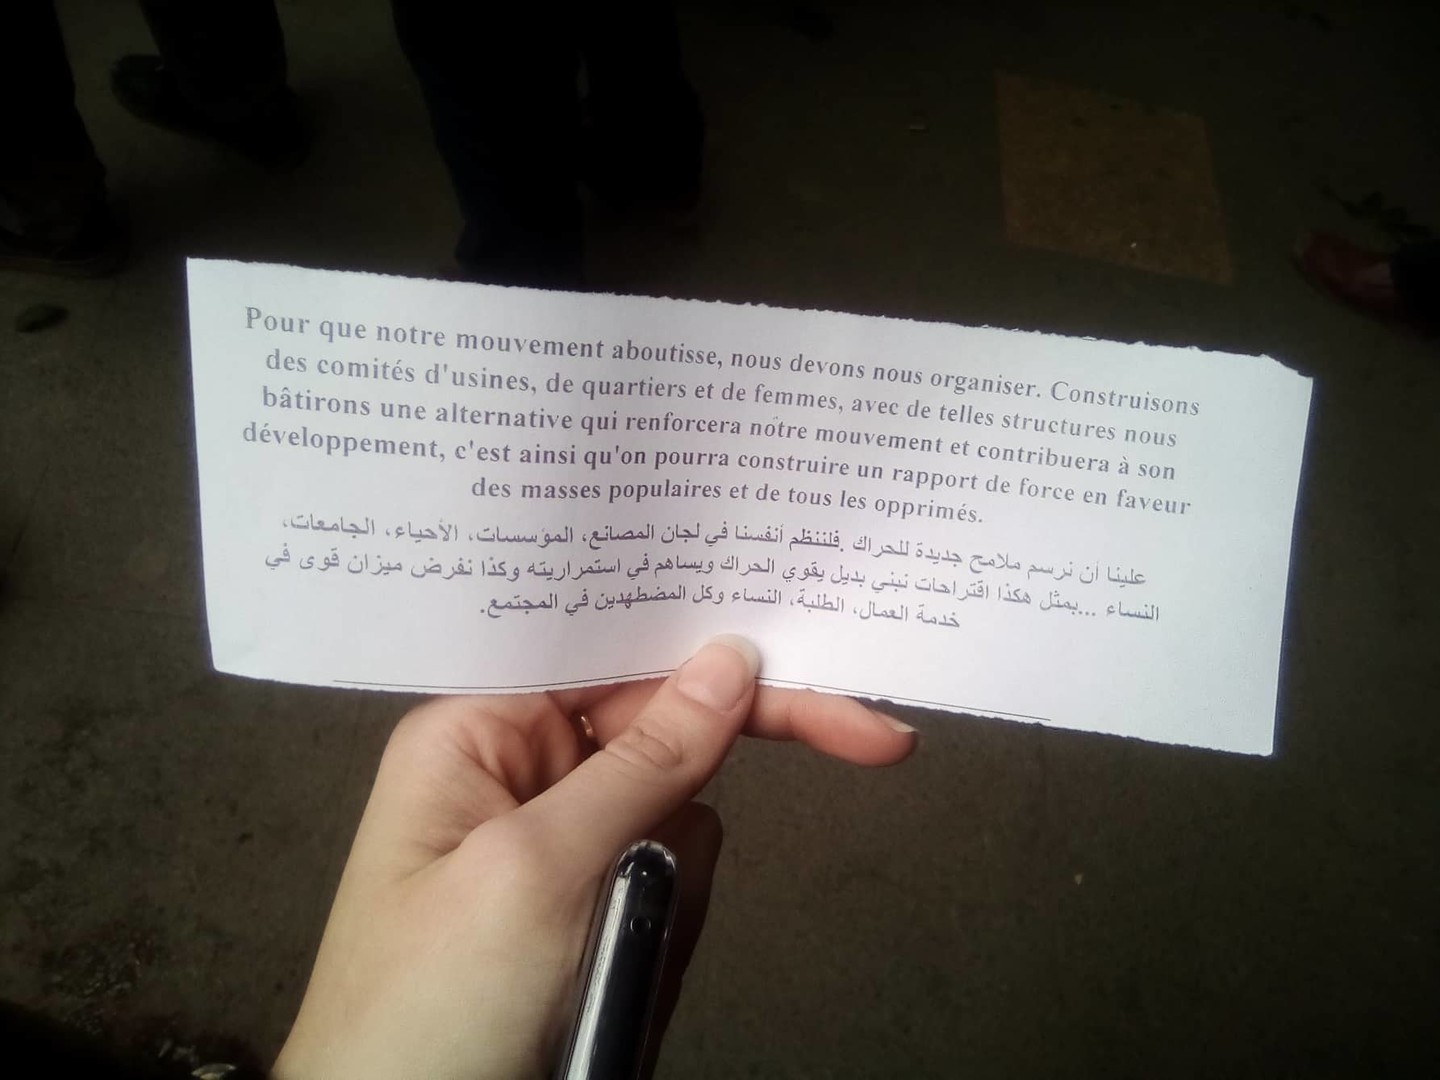 Pour que notre mouvement aboutisse, nous devons nous organiser. Construisons
des comités d'usines, de quartiers et de femmes, avec de telles structures nous
bâtirons une alternative qui renforcera notre mouvement et contribuera à son
développement, c'est ainsi qu'on pourra construire un rapport de force en faveur
des masses populaires et de tous les opprimés.
علينا أن نرسم ملامح جديدة للحراك .فلننظم أنفسنا في لجان المصانع، المؤسسات، الأحياء، الجامعات،
النساء ...بمثل هكذا اقتراحات نبني بديل يقوي الحراك ويساهم في استمراريته وكذا نفرض ميزان قوى في
خدمة العمال، الطلبة، النساء وكل المضطهدين في المجتمع.